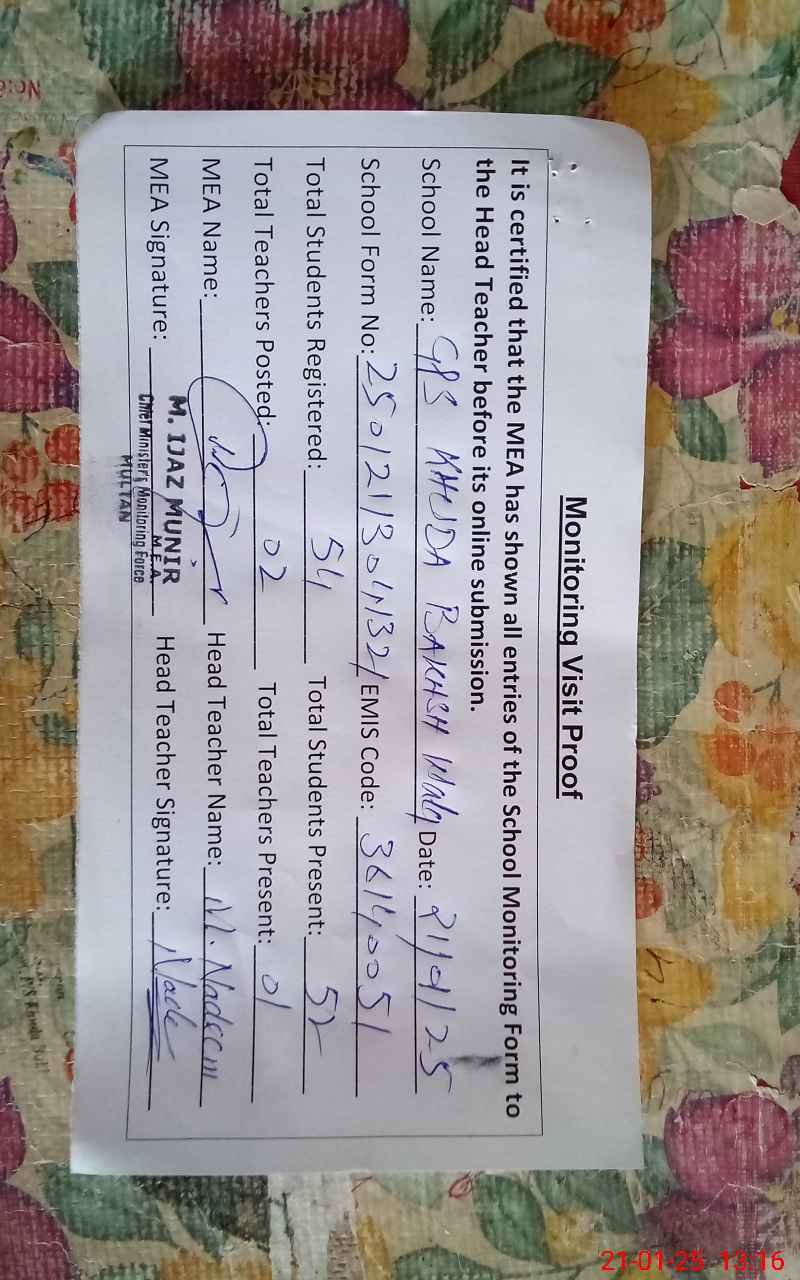 Monitoring Visit Proof
It is certified that the MEA has shown all entries of the School Monitoring Form to
the Head Teacher before its online submission.
School Name: GPS KHUDA BAKHSH Wala Date: 21/01/25
School Form No: 2501211304132 EMIS Code: 36140051
Total Students Registered: 54 Total Students Present: 52
Total Teachers Posted: 02 Total Teachers Present: 01
MEA Name: Head Teacher Name: M. Nadeem
MEA Signature: Head Teacher Signature: Nade
M. IJAZ MUNIR
M.E.A.
Chief Minister's Monitoring Force
MULTAN
21-01-25 13:16